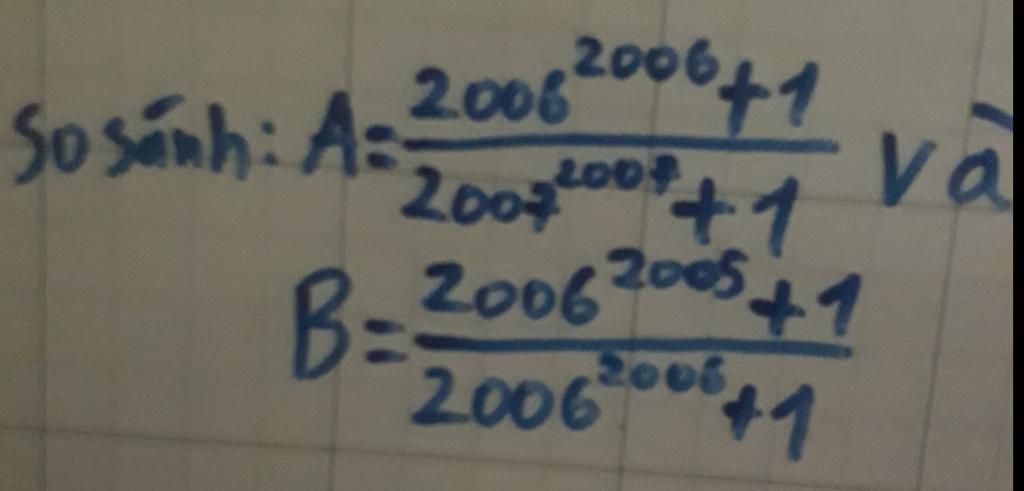 So sánh: A = \frac{2006^{2006}+1}{2007^{2007}+1} và
B = \frac{2006^{2005}+1}{2006^{2006}+1}